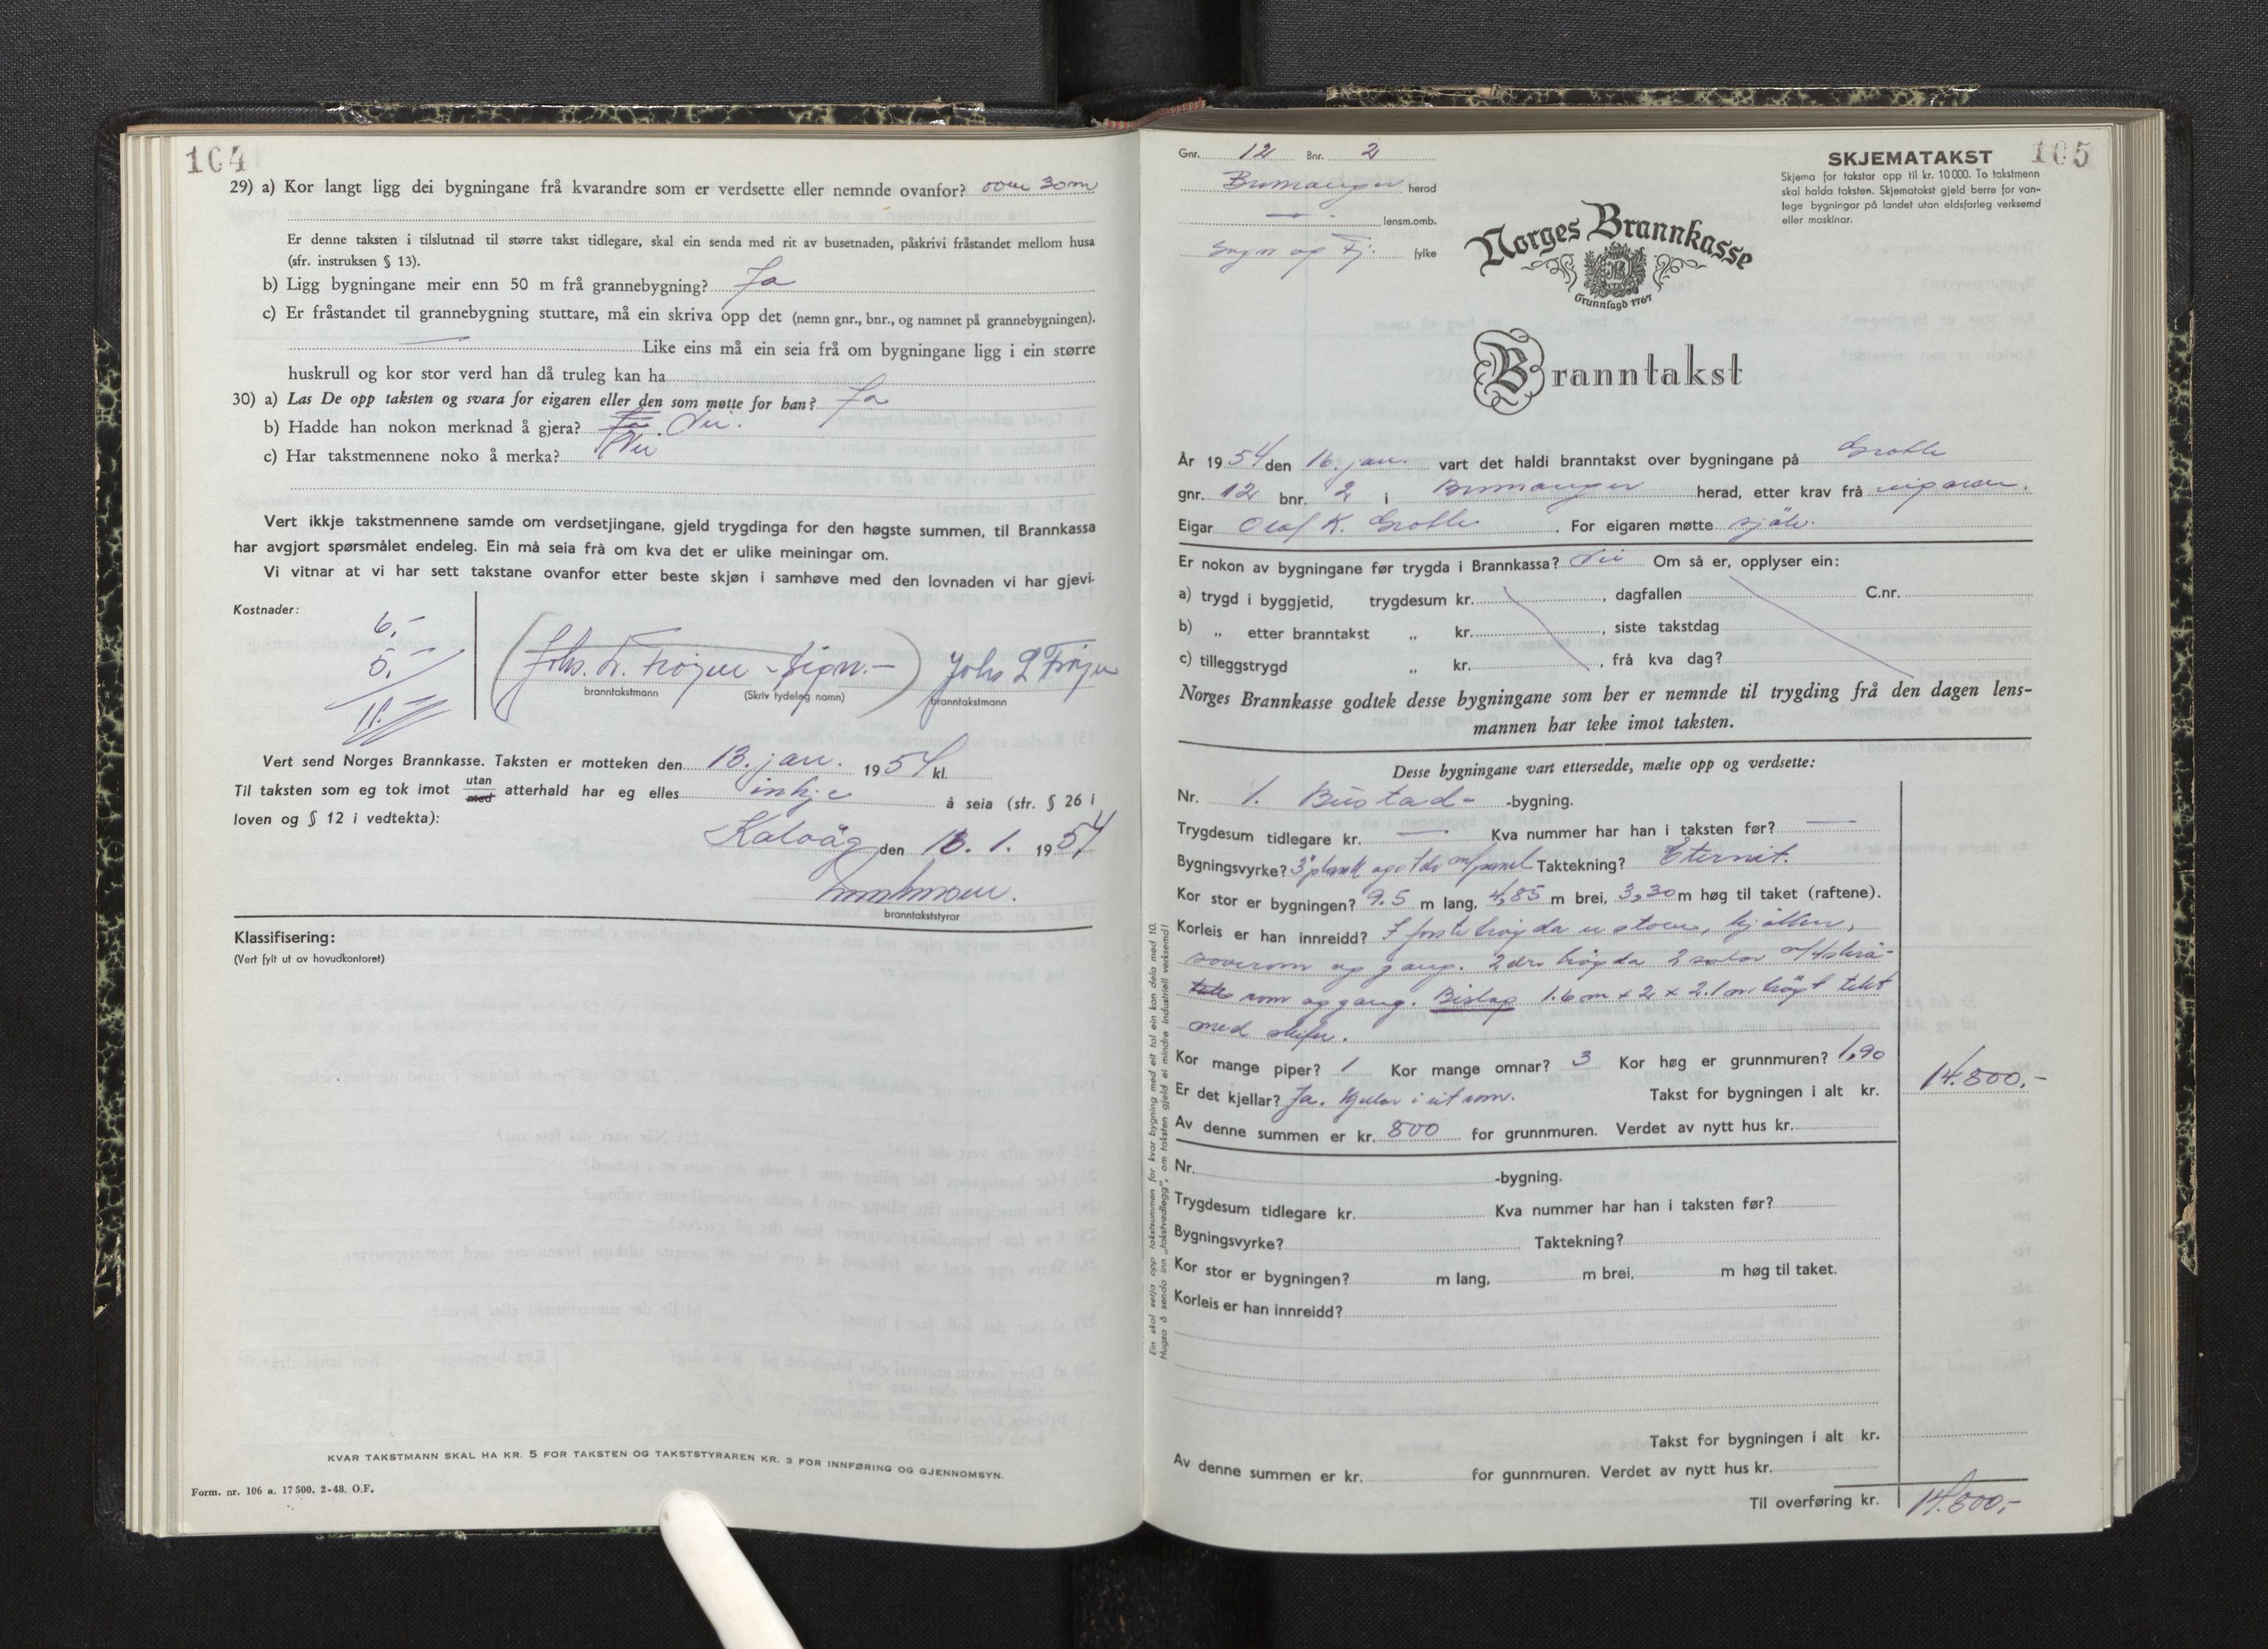 104
29) a) Kor langt ligg dei bygningane frå kvarandre som er verdsette eller nemnde ovanfor? 30m
Er denne taksten i tilslutnad til større takst tidlegare, skal ein senda med rit av busetnaden, påskrivi fråstandet mellom husa
(sfr. instruksen § 13).
b) Ligg bygningane meir enn 50 m frå grannebygning? Ja
c) Er fråstandet til grannebygning stuttare, må ein skriva opp det (nemn gnr., bnr., og namnet på grannebygningen).
— Like eins må ein seia frå om bygningane ligg i ein større
huskrull og kor stor verd han då truleg kan ha
30) a) Las De opp taksten og svara for eigaren eller den som møtte for han? Ja
b) Hadde han nokon merknad å gjera? Nei.
c) Har takstmennene noko å merka? Nei
Vert ikkje takstmennene samde om verdsetjingane, gjeld trygdinga for den høgste summen, til Brannkassa
har avgjort spørsmålet endeleg. Ein må seia frå om kva det er ulike meiningar om.
Vi vitnar at vi har sett takstane ovanfor etter beste skjøn i samhøve med den lovnaden vi har gjevi.
Kostnader:
6,-
5,-
11.-
(Johs. L. Frøyen - sign. -) Johs L Frøyen
branntakstmann (Skriv tydeleg namn) branntakstmann
Vert send Norges Brannkasse. Taksten er motteken den 13. jan. 1954 kl.
Til taksten som eg tok imot utan med atterhald har eg elles inkje å seia (sfr. § 26 i
loven og § 12 i vedtekta):
Kalvåg den 13. 1. 1954
branntakststyrar
Klassifisering:
(Vert fylt ut av hovudkontoret)
KVAR TAKSTMANN SKAL HA KR. 5 FOR TAKSTEN OG TAKSTSTYRAREN KR. 3 FOR INNFØRING OG GJENNOMSYN.
Form. nr. 106 a. 17 500. 2-48. O.F.
Gnr. 12 Bnr. 2
Bremanger herad
— lensm.omb.
Sogn og Fj. fylke
SKJEMATAKST 105
Skjema for takstar opp til kr. 10 000. To takstmenn
skal halda taksten. Skjematakst gjeld berre for van-
lege bygningar på landet utan eldsfarleg verksemd
eller maskinar.
Norges Brannkasse
Grunnlagd 1767
Branntakst
År 1954 den 16. jan. vart det haldi branntakst over bygningane på Grotle
gnr. 12 bnr. 2 i Bremanger herad, etter krav frå eigaren.
Eigar Olaf K. Grotle. For eigaren møtte sjølv.
Er nokon av bygningane før trygda i Brannkassa? Nei Om så er, opplyser ein:
a) trygd i byggjetid, trygdesum kr. , dagfallen C.nr.
b) „ etter branntakst „ kr. , siste takstdag
c) tilleggstrygd „ kr. , frå kva dag?
Norges Brannkasse godtek desse bygningane som her er nemnde til trygding frå den dagen lens-
mannen har teke imot taksten.
Desse bygningane vart ettersedde, mælte opp og verdsette:
Nr. 1. Bustad- -bygning.
Trygdesum tidlegare kr. — Kva nummer har han i taksten før? —
Bygningsvyrke? 3" plank m/panel Taktekning? Eternit.
Kor stor er bygningen? 9.5 m lang, 4,85 m brei, 3,30 m høg til taket (raftene).
Korleis er han innreidd? I første høgda er stove, kjøkken,
soverom og gang. 2dre høgda 2 salar m/4 skrå-
rom og gang. Bislag 1.6m x 2 x 2.1m høgt tekt
med skifer.
Kor mange piper? 1 Kor mange omnar? 3 Kor høg er grunnmuren? 1,90
Er det kjellar? Ja. Kjellar i eit rom. Takst for bygningen i alt kr. 14.800.-
Av denne summen er kr. 800 for grunnmuren. Verdet av nytt hus kr.
Nr. -bygning.
Trygdesum tidlegare kr. Kva nummer har han i taksten før?
Bygningsvyrke? Taktekning?
Kor stor er bygningen? m lang, m brei, m høg til taket.
Korleis er han innreidd?
Takst for bygningen i alt kr.
Av denne summen er kr. for gunnmuren. Verdet av nytt hus kr.
Til overføring kr. 14.800,-
Ein skal setja opp takstsummen for kvar bygning med eit tal ein kan dela med 10.
Hugsa å senda inn „takstvedlegg", om taksten gjeld ei mindre industriell verksemd!